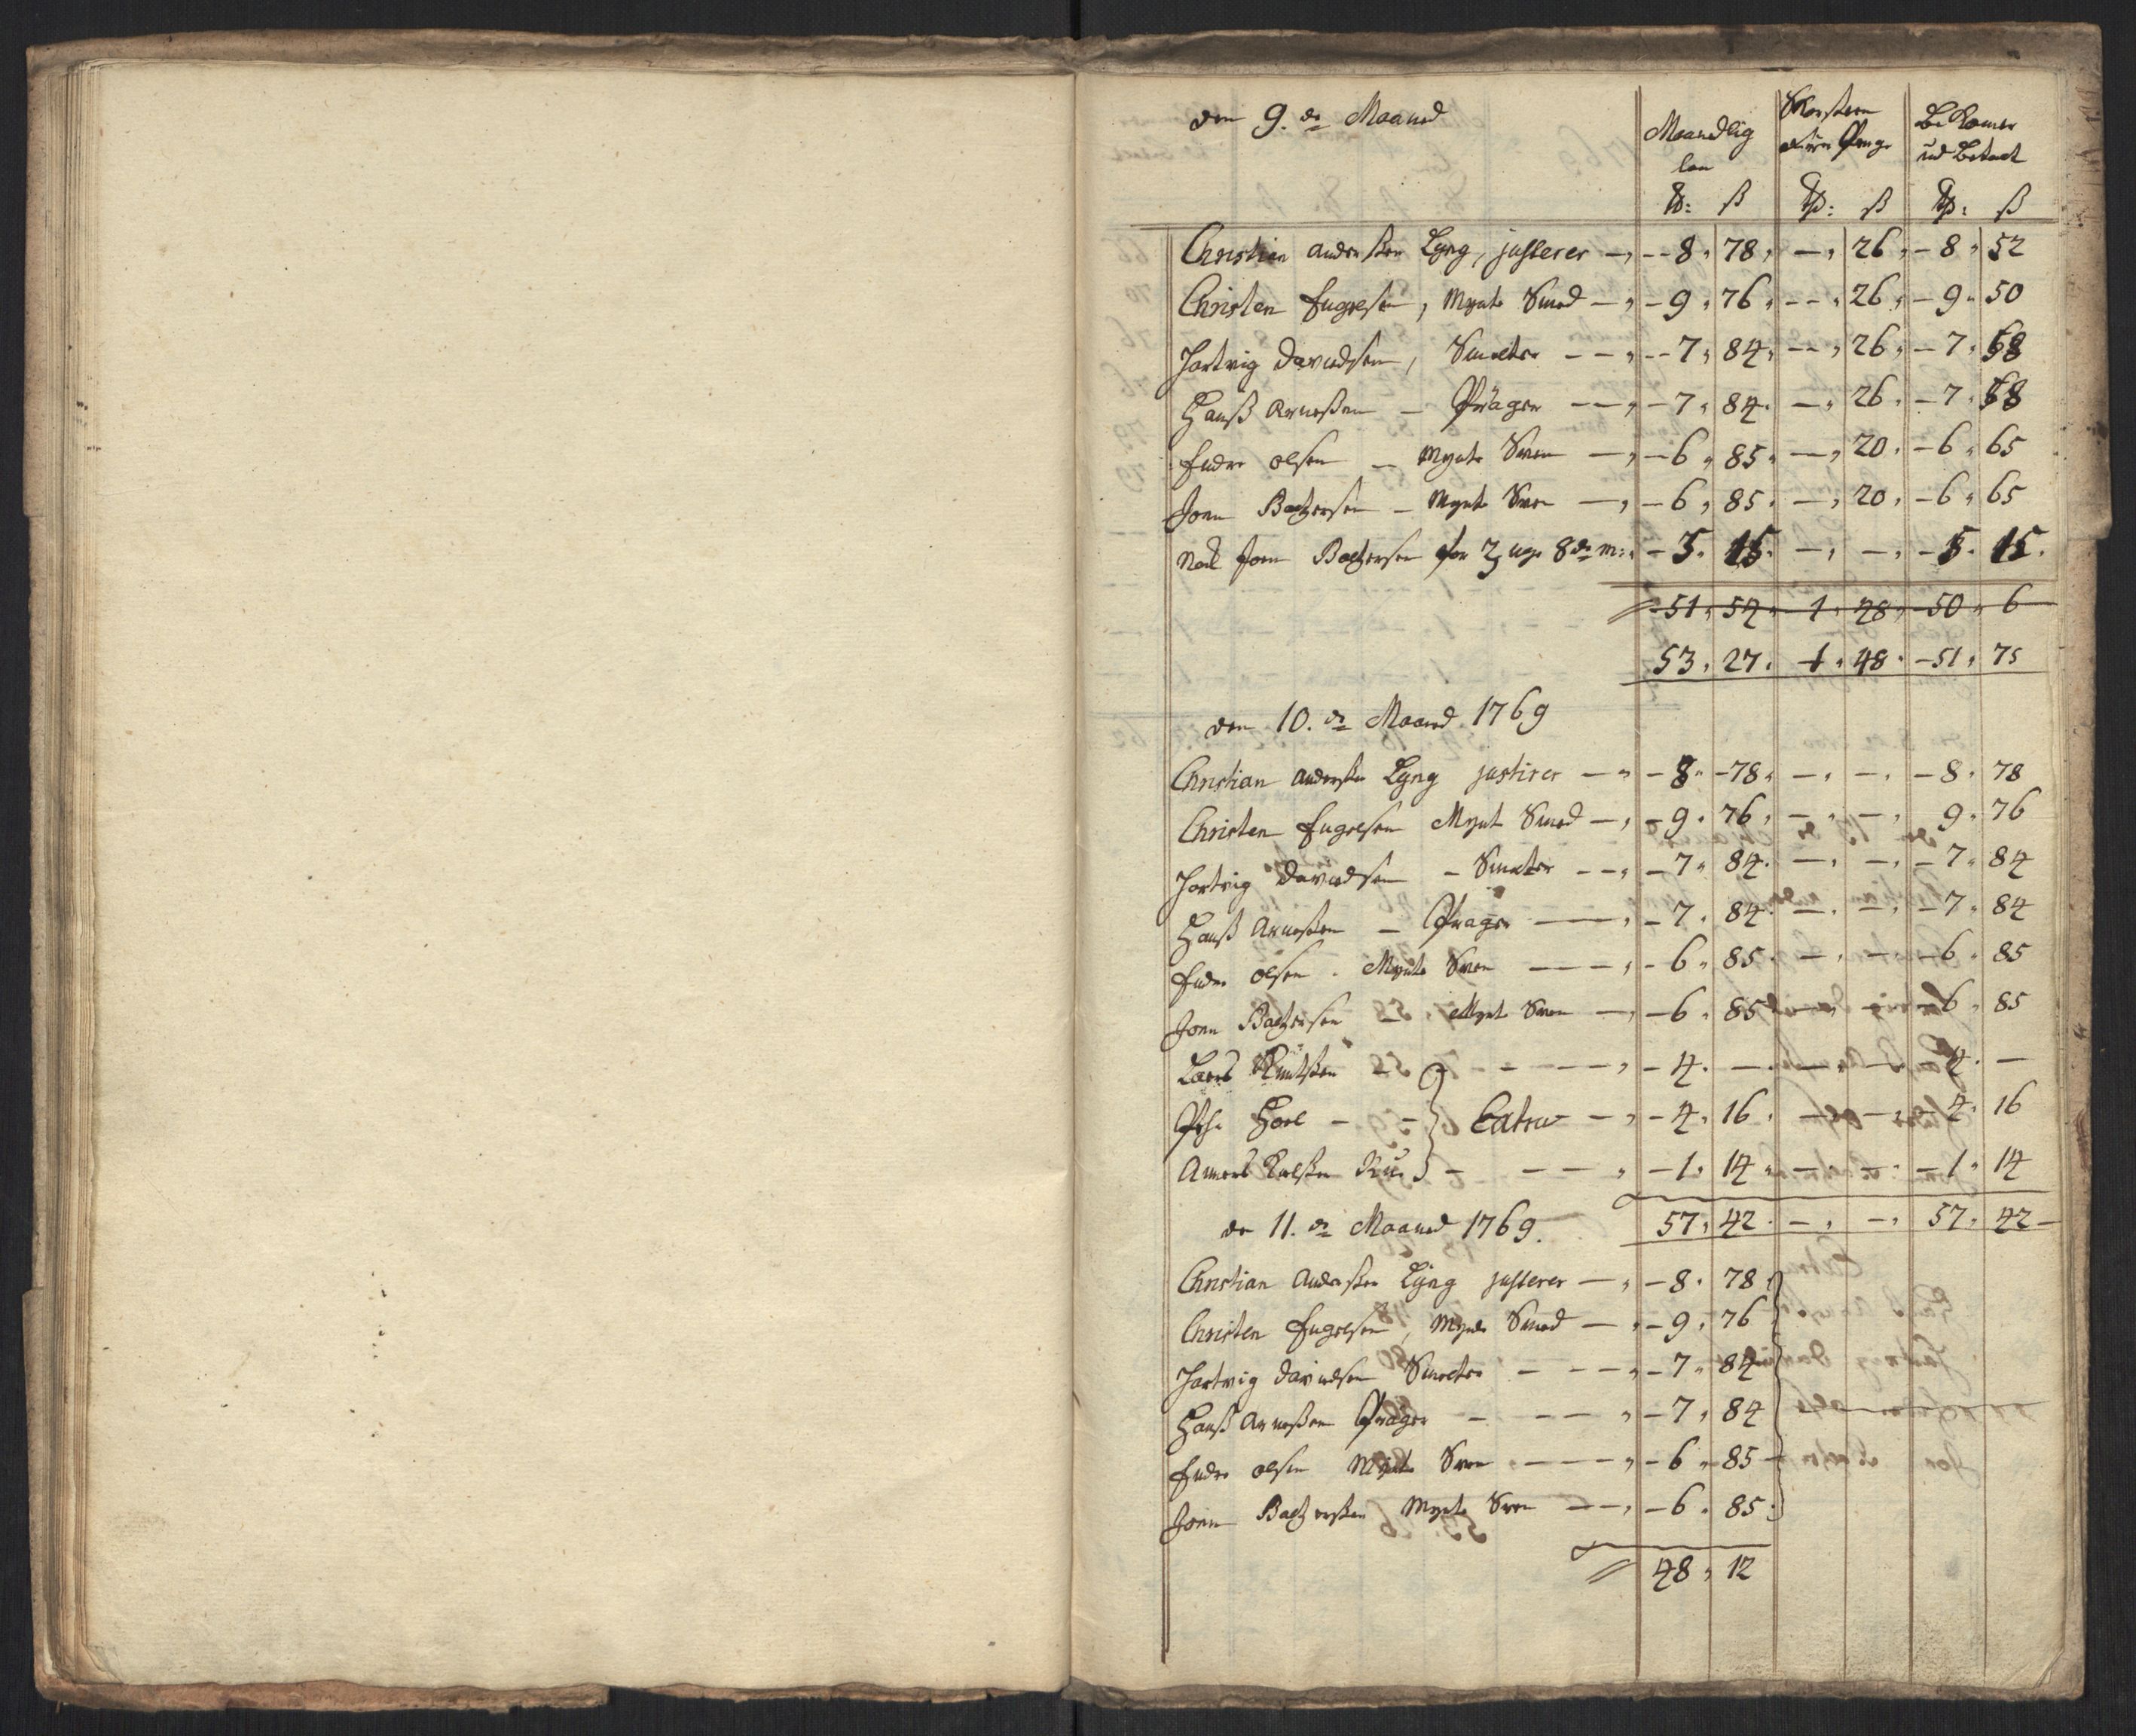 den 9.de Maaned
Maanedlig
løn
Bekomer
ud Betalt
ß ß ß
Christian Anderssen Lyng, justerer — 8 „ 78 „ — „ 26 „ 8 „ 52
Christen Engelsen, Mynte Smed — 9 „ 76 „ — „ 26 „ 9 „ 50
Hartvig Davidsen, Smelter — 7 „ 84 „ — „ 26 „ 7 „ 58
Hanß Arnessen — Präger — 7 „ 84 „ — „ 26 „ 7 „ 58
Endre olsen — Mynte Sven — 6 „ 85 „ — „ 20 „ 6 „ 65
Joen Baltzersen — Mynte Sven — 6 „ 85 „ — „ 20 „ 6 „ 65
Joen Baltzersen for 3 uger 8de m: — 5 „ 15 „ — „ — „ 5 „ 15
51 „ 54 „ 1 „ 48 „ 50 „ 6
53 „ 27 „ 1 „ 48 „ 51 „ 75
den 10.de Maaned 1769
Christian Anderssen Lyng justirer — 8 „ 78 „ — „ — „ 8 „ 78
Christen Engelsen Mynt Smed — 9 „ 76 „ — „ — „ 9 „ 76
Hartvig Davidsen — Smelter — 7 „ 84 „ — „ — „ 7 „ 84
Hanß Arnessen — Prager — 7 „ 84 „ — „ — „ 7 „ 84
Endre olsen . Mynte Sven — 6 „ 85 „ — „ — „ 6 „ 85
Joen Baltzersen — Mynt Svend — 6 „ 85 „ — „ — „ 6 „ 85
Lars Knutssen — 4 „ — „ — „ — „ 4 „ —
Extra — 4 „ 16 „ — „ — „ 4 „ 16
— 1 „ 14 „ — „ — „ 1 „ 14
57 „ 42 „ — „ — „ 57 „ 42
de 11.de Maaned 1769.
Christian Anderssen Lyng justerer — 8 „ 78
Christen Engelsen, Mynte Smed — 9 „ 76
Hartvig Davidsen Smelter — 7 „ 84
Hanß Arnessen Prager — 7 „ 84
Endre olsen Mynte Sven — 6 „ 85
Joen Baltzerssen Mynte Svend — 6 „ 85
48 „ 12